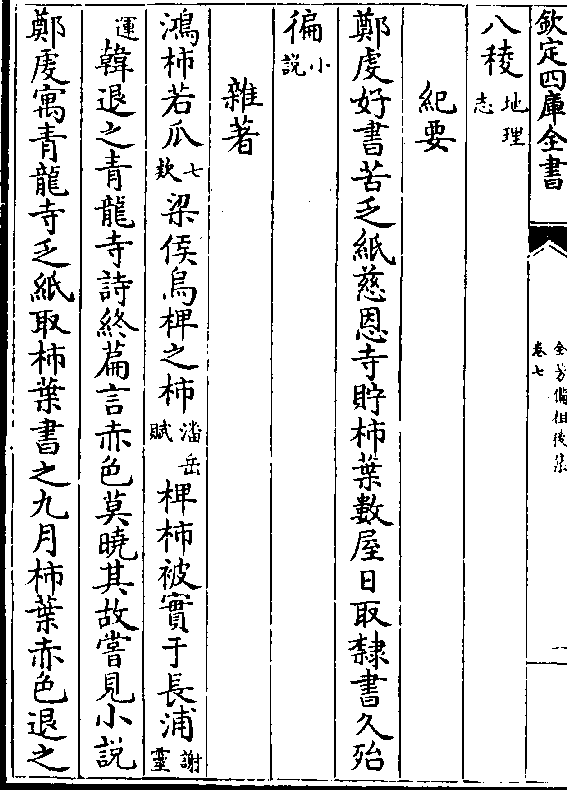 欽定四庫全書
全芳備祖後集
卷七
一
八稜地理志
紀要
鄭䖍好書苦乏紙慈恩寺貯柿葉數屋日取隸書久殆
徧小說
雜著
鴻柿若瓜七欵梁侯烏椑之柿潘岳賦椑柿被實于長浦謝靈
運韓退之青龍寺詩終篇言赤色莫曉其故嘗見小說
鄭䖍寓青龍寺乏紙取柿葉書之九月柿葉赤色退之